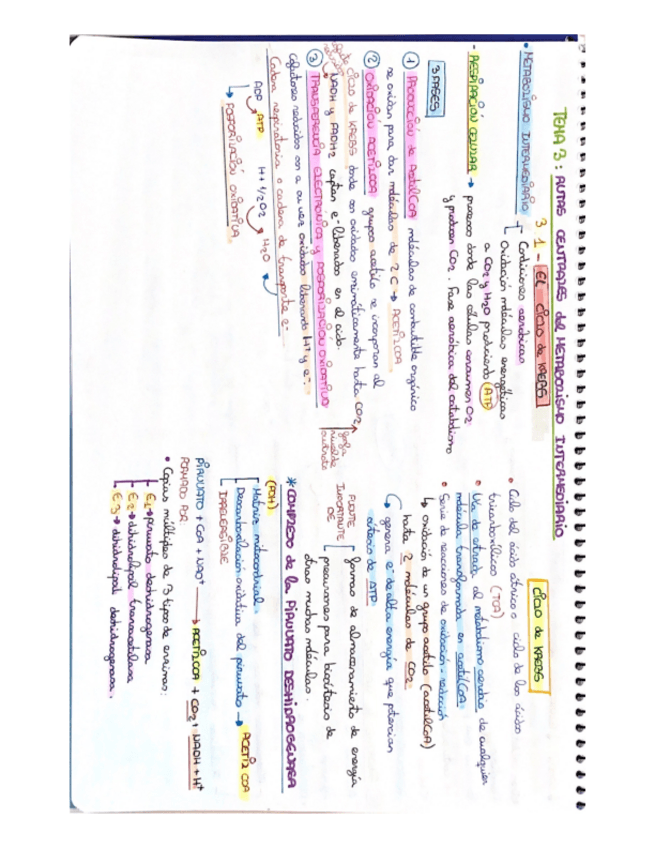 TEMA 3: RUTAS CENTRALES del METABOLISMO INTERMEDIARIO
3.1 - El ciclo de KREBS
• METABOLISMO INTERMEDIARIO
Condiciones aeróbicas
Oxidación moléculas energéticas
a CO2 y H2O produciendo ATP
- RESPIRACIÓN CELULAR → proceso donde las células consumen O2
y producen CO2. Fase aeróbica del catabolismo
3 FASES
① PRODUCCIÓN de AcetilCoA moléculas de combustible orgánico
se oxidan para dar moléculas de 2C → ACETILCOA
② OXIDACIÓN ACETILCOA grupos acetilo se incorporan al
ciclo de KREBS donde son oxidados enzimáticamente hasta CO2
NADH y FADH2 captan e- liberados en el ciclo.
③ TRANSFERENCIA ELECTRÓNICA y FOSFORILACIÓN OXIDATIVA
Cofactores reducidos son a su vez oxidados liberando H+ y e-.
Cadena respiratoria o cadena de transporte e-
ADP ATP H+ 1/2O2 H2O
FOSFORILACIÓN OXIDATIVA
CICLO de KREBS
• Ciclo del ácido cítrico o ciclo de los ácidos
tricarboxílicos (TCA)
• Vía de entrada al metabolismo aerobio de cualquier
molécula transformada en acetilCoA
• Serie de reacciones de oxidación-reducción
↳ oxidación de un grupo acetilo (acetilCoA)
hasta 2 moléculas de CO2
genera e- de alta energía que potencian
síntesis de ATP
FUENTE
IMPORTANTE
DE
formas de almacenamiento de energía
precursores para biosíntesis de
otras muchas moléculas.
* COMPLEJO de la PIRUVATO DESHIDROGENASA
(PDH)
Matriz mitocondrial
Descarboxilación oxidativa del piruvato → ACETIL COA
IRREVERSIBLE
PIRUVATO + CoA + NAD+ → ACETILCOA + CO2 + NADH + H+
FORMADO POR:
• Copias múltiples de 3 tipos de enzimas:
E1 → piruvato deshidrogenasa
E2 → dihidrolipoil transacetilasa
E3 → dihidrolipoil deshidrogenasa.